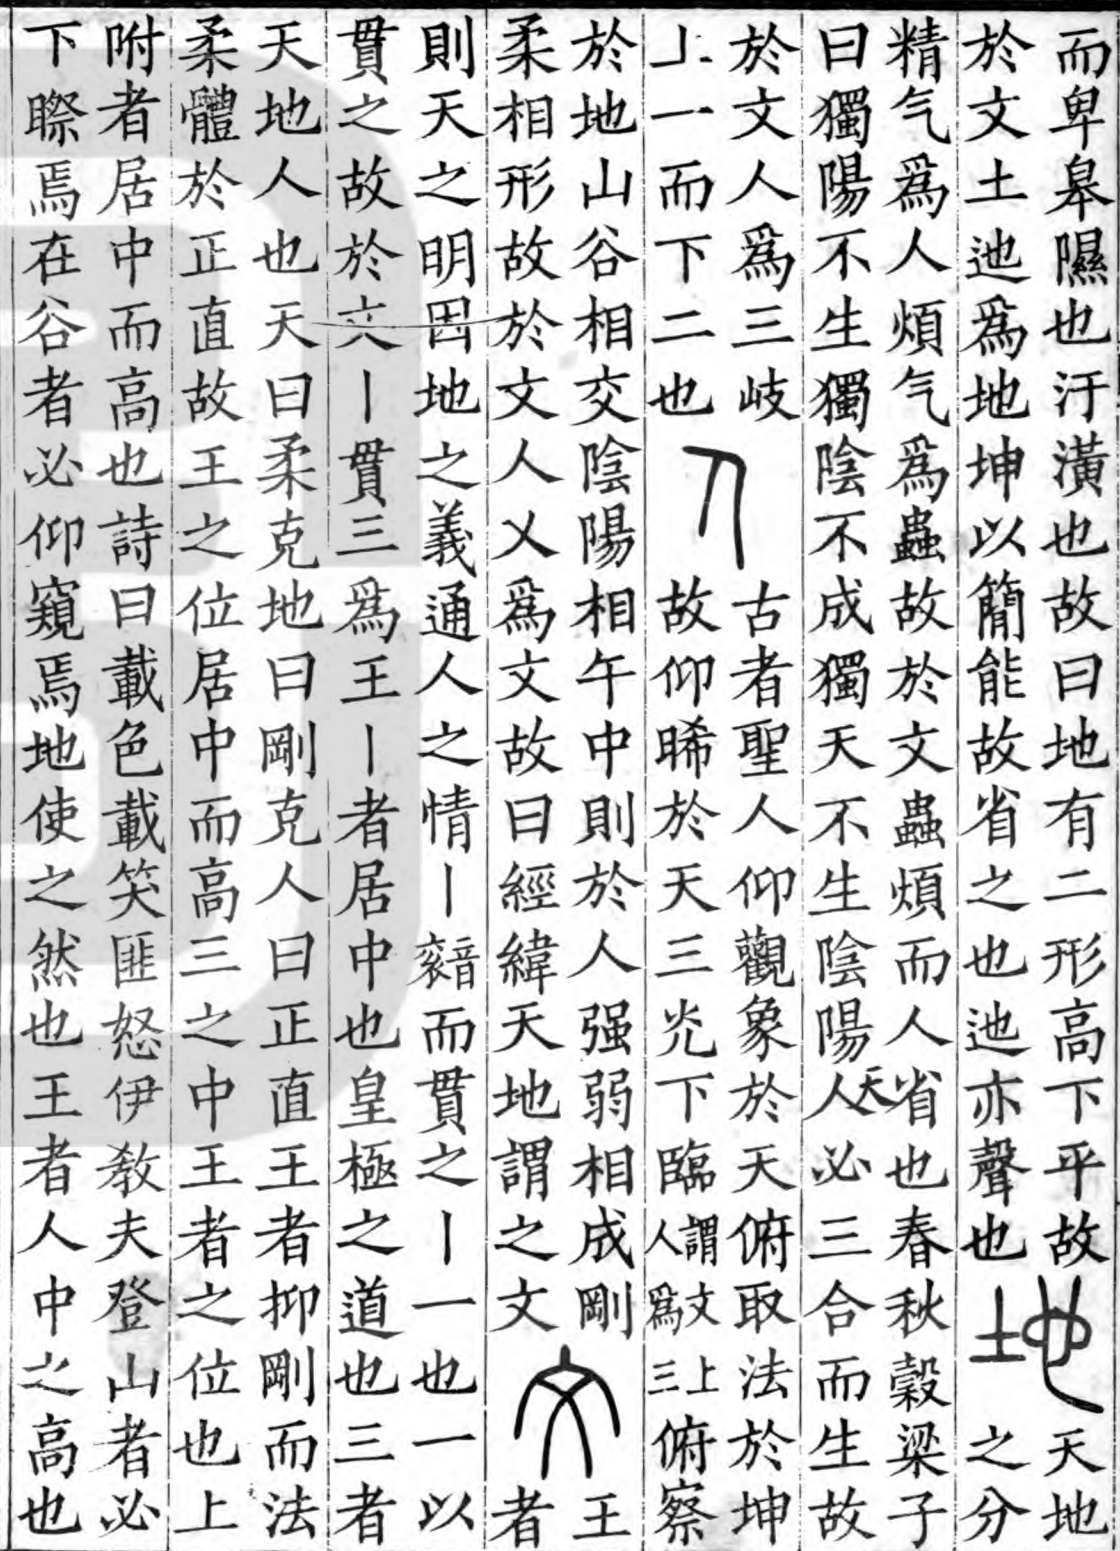 而卑皋隰也汙潢也故曰地有二形高下平故
於文土迆爲地坤以簡能故省之也迆亦聲也
地
天地
之分
精气爲人煩气爲蟲故於文蟲煩而人省也春秋穀梁子
曰獨陽不生獨陰不成獨天不生陰陽天人必三合而生故
於文人爲三岐
丄一而下二也
人
古者聖人仰觀象於天俯取法於坤
故仰晞於天三光下臨謂文上人爲三俯察
於地山谷相交陰陽相午中則於人强弱相成剛
柔相形故於文人乂爲文故曰經緯天地謂之文
文
王
者
則天之明因地之義通人之情丨音袞而貫之丨一也一以
貫之故於文丨貫三爲王丨者居中也皇極之道也三者
天地人也天曰柔克地曰剛克人曰正直王者抑剛而法
柔體於正直故王之位居中而高三之中王者之位也上
附者居中而高也詩曰載色載笑匪怒伊敎夫登山者必
下瞭焉在谷者必仰窺焉地使之然也王者人中之高也